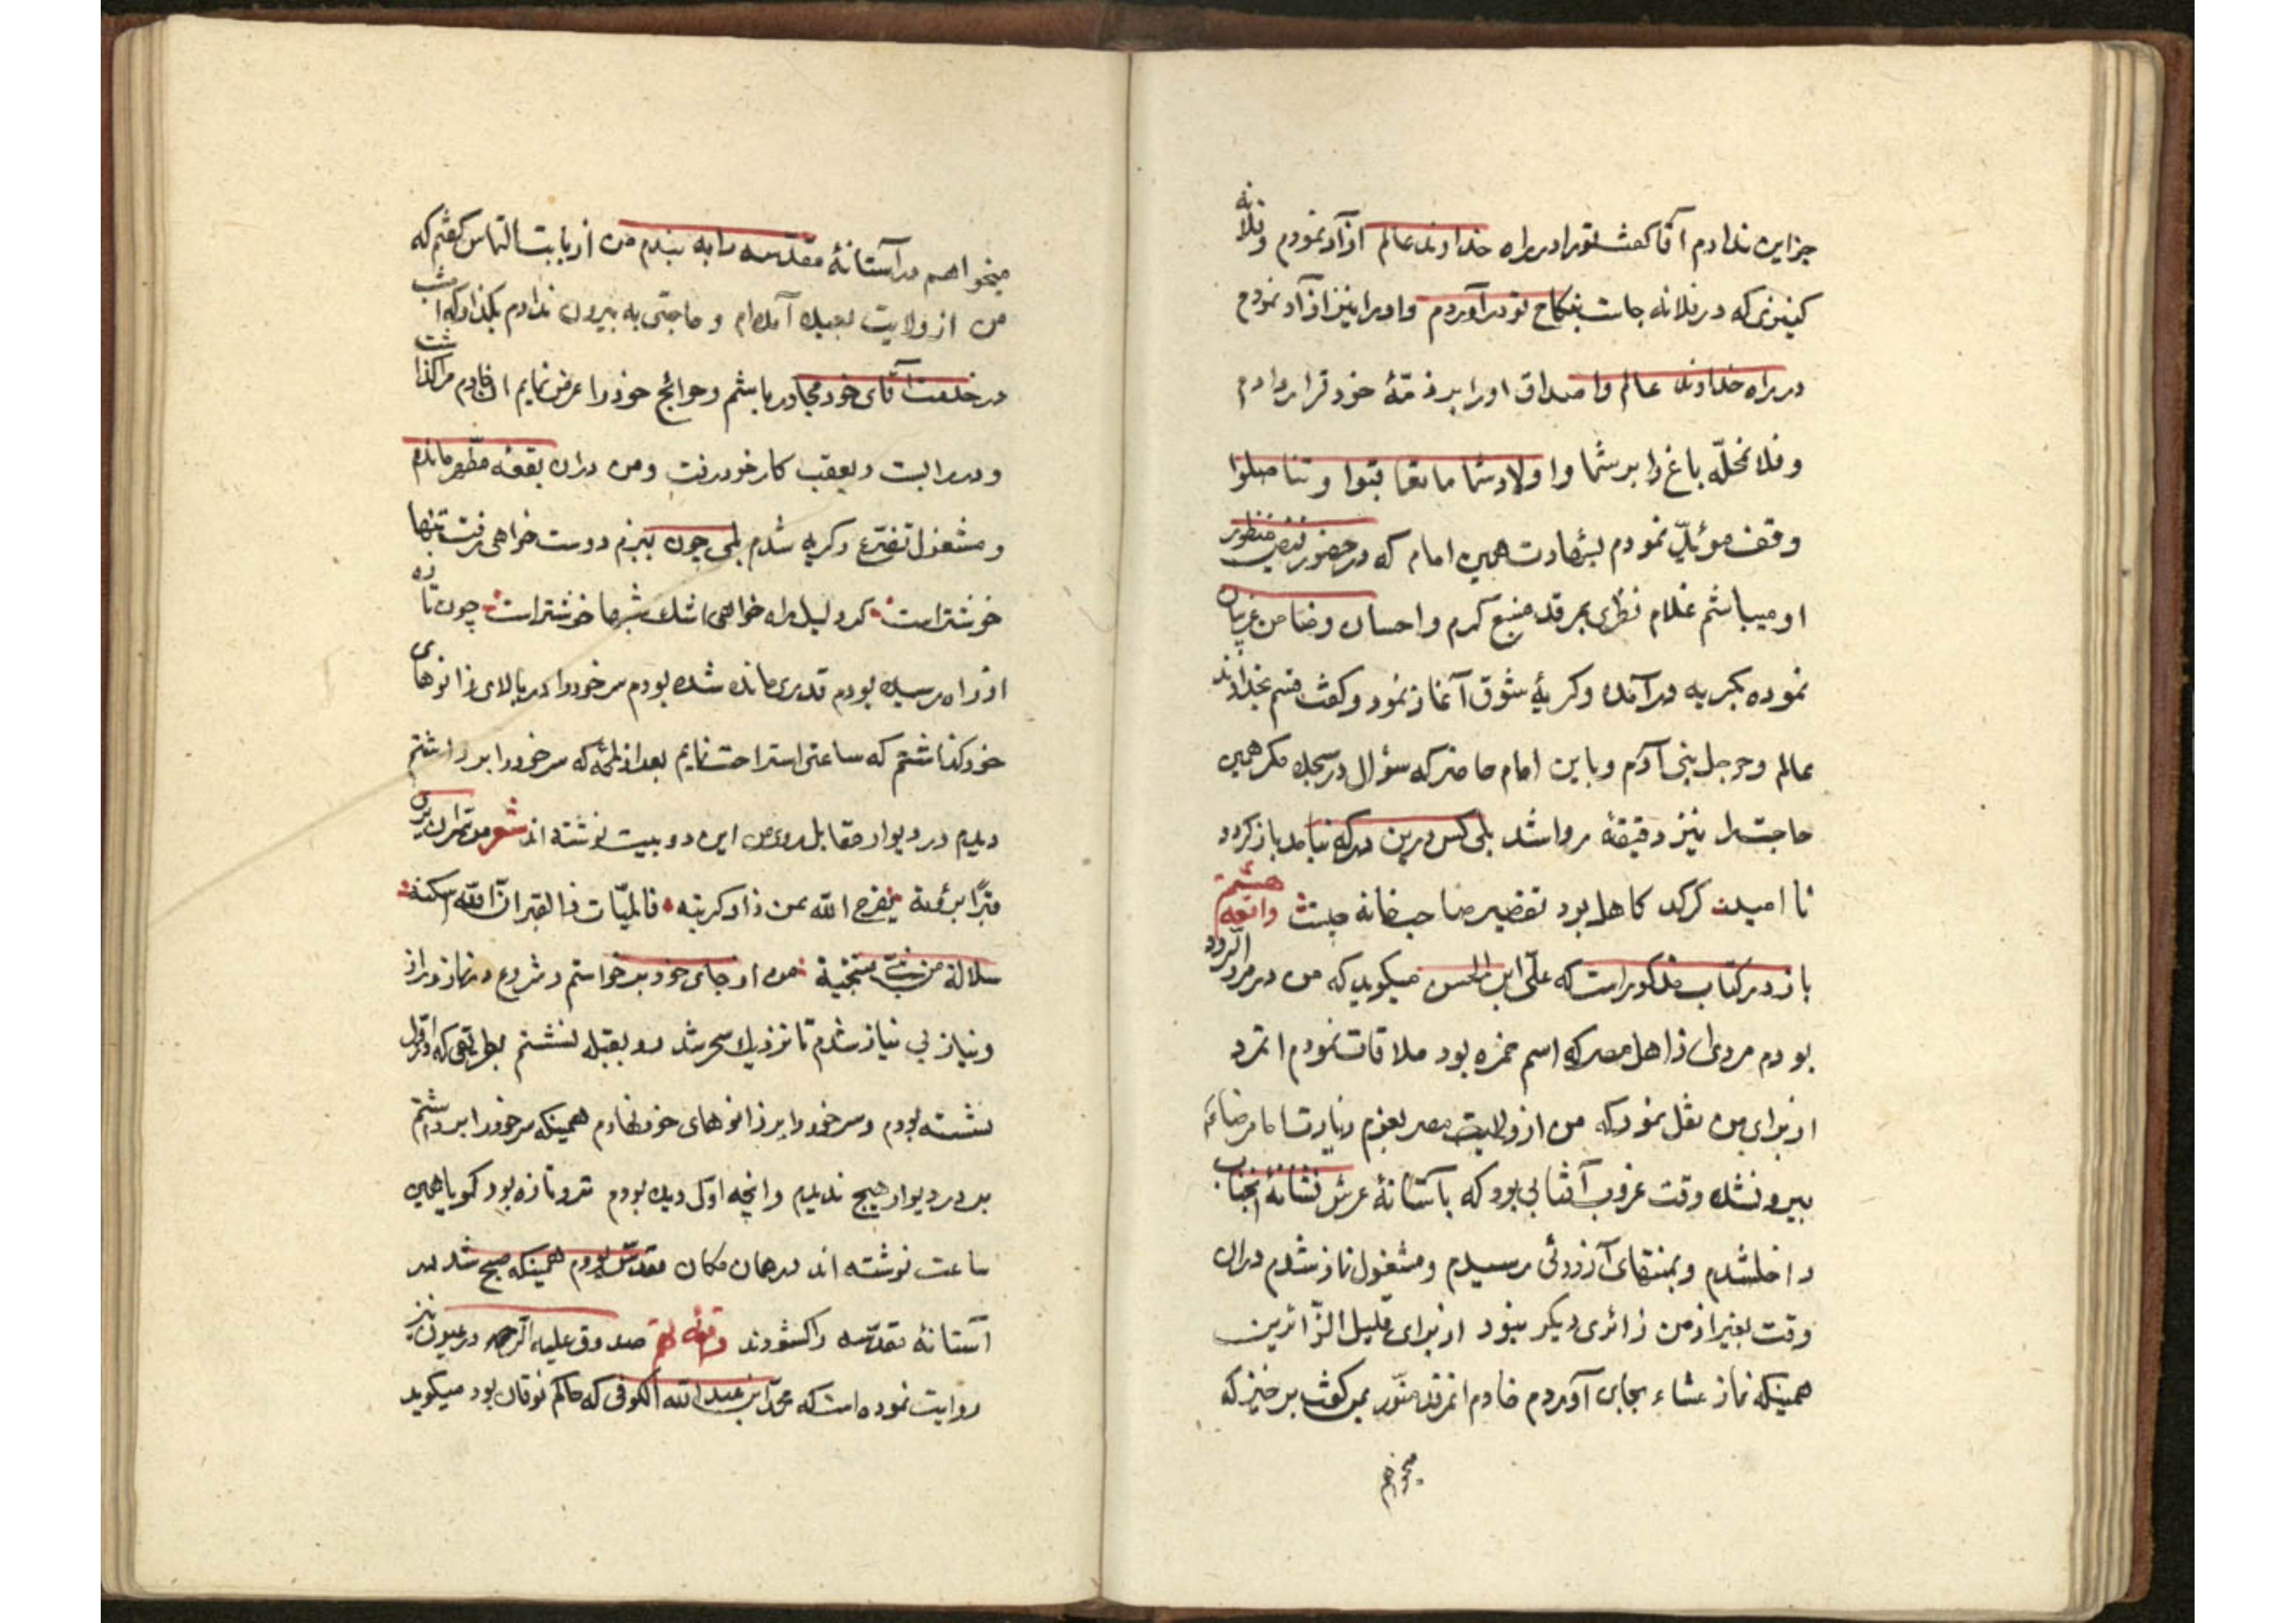 جز این ندارم آقا گفت تو را در راه خداوند عالم آزاد نمودم و فلانه
کنیزی که در فلانه جاست بنکاح تو درآوردم و او را نیز آزاد نمودم
در راه خداوند عالم و صداق او را بر ذمّهٔ خود قرار دادم
و فلان محلّه باغ را بر شما و اولاد شما ما تعاقبوا و تناسلوا
وقف مؤبّد نمودم بشهادت همین امام که در حضور فیض منظور
او میباشم غلام نظری بمرقد منبع کرم و احسان و ضامن غریبان
نموده بگریه درآمده و گریهٔ شوق آغاز نمود و گفت قسم بخداوند
عالم و جمله بنی آدم و باین امام حاضر که سؤال در سجده مکر همین
حاجت را نیز دقیقهٔ روا شد بلی کس درین درگه نیامد باز گردد
نا امید گر گدا کاهل بود تقصیر صاحبخانه چیست واقعه هشتم
باز در کتاب مذکور است که علی ابن الحسن میگوید که من در مرو الرود
بودم مردی از اهل مصر که اسم حمزه بود ملاقات نمودم انمرد
از برای من نقل نمود که من از ولایت مصر بعزم زیارت امام رضا ع
بیرون شده وقت غروب آفتابی بود که باستانهٔ عرش نشانهٔ آنجناب
داخلشدم و بمنتهای آرزوئی رسیدم و مشغول نماز شدم دران
وقت بغیر از من زائری دیگر نبود از برای قلیل الزّائرین
همینکه نماز عشاء بجای آوردم خادم انمرقد منوّر بمن گفت برخیز که
میخواهم
میخواهم در آستانهٔ مقدّسه را به بندم من از بابت التماس گفتم که
من از ولایت بعیده آمده‌ام و حاجتی به بیرون ندارم بگذار که امشب
در خدمت آقای خود مجاور باشم و حوائج خود را عرض نمایم ان خادم مرا گذاشت
و در را بست و بعقب کار خود رفت و من دران بقعهٔ مطهر ماندم
و مشغول تضرّع و گریه شدم بلی چون ببزم دوست خواهی رفت تنها
خوشتر است گر دلیل راه خواهی اشک شبها خوشتر است چون تازه
از راه رسیده بودم قدری مانده شده بودم سر خود را در بالای زانوهای
خود گذاشتم که ساعتی استراحت نمایم بعد از لمحهٔ که سر خود را برداشتم
دیدم در دیوار مقابل روی من این دو بیت نوشته اند شعر من سرّه ان یری
قبرًا برؤیته یفرج الله عمن زار کربته فالیأت ذا القبر انّ الله اسکنه
سلالة من نبیّ منتجبة من از جای خود برخواستم و شروع در نماز و راز
و نیاز بی نیاز شدم تا نزدیک سحر شد رو بقبله نشستم بطریقی که اوّل
نشسته بودم و سر خود را بر زانوهای خود نهادم همینکه سر خود را برداشتم
بر در دیوار هیچ ندیدم و انچه اوّل دیده بودم تر و تازه بود گویا همین
ساعت نوشته اند در همان مکان مقدّس بودم همینکه صبح شد در
آستانهٔ مقدّسه را گشودند واقعهٔ نهم صدوق علیه الرحمه در عیون نیز
روایت نموده است که محمّد ابن عبد الله الکوفی که حاکم نوقان بود میگوید